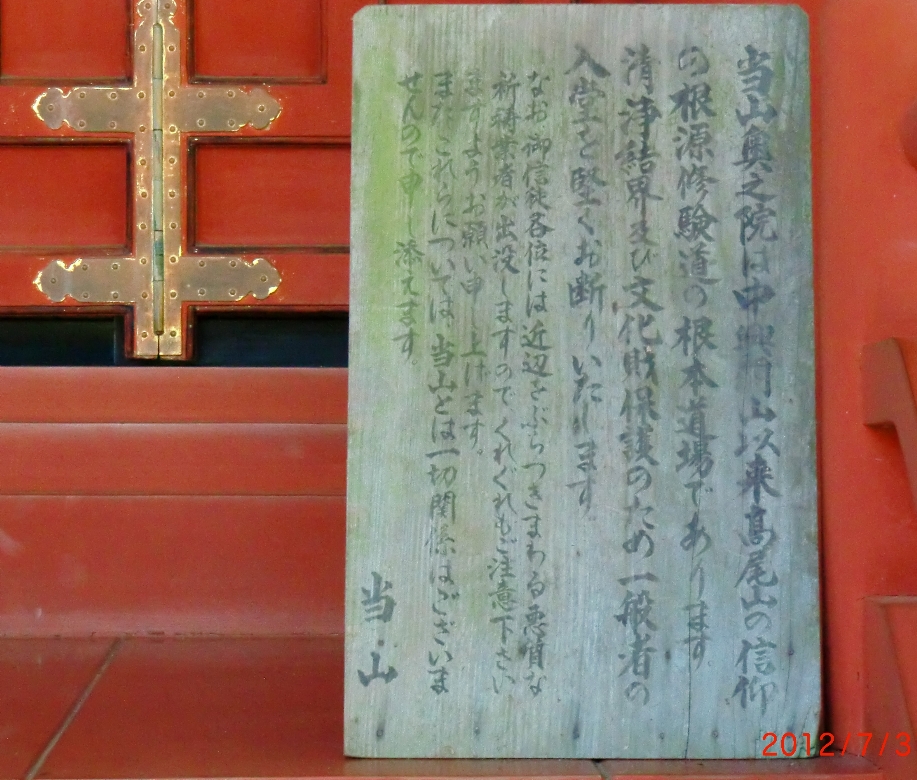 当山奥之院は中興開山以来高尾山の信仰
の根源修験道の根本道場であります。
清浄結界及び文化財保護のため一般者の
入堂を堅くお断りいたします。
なお御信徒各位には近辺をぶらつきまわる悪質な
祈祷業者が出没しますのでくれぐれもご注意下さい
ますようお願い申し上げます。
またこれらについては、当山とは一切関係はございま
せんので申し添えます。
当山
2012/7/3